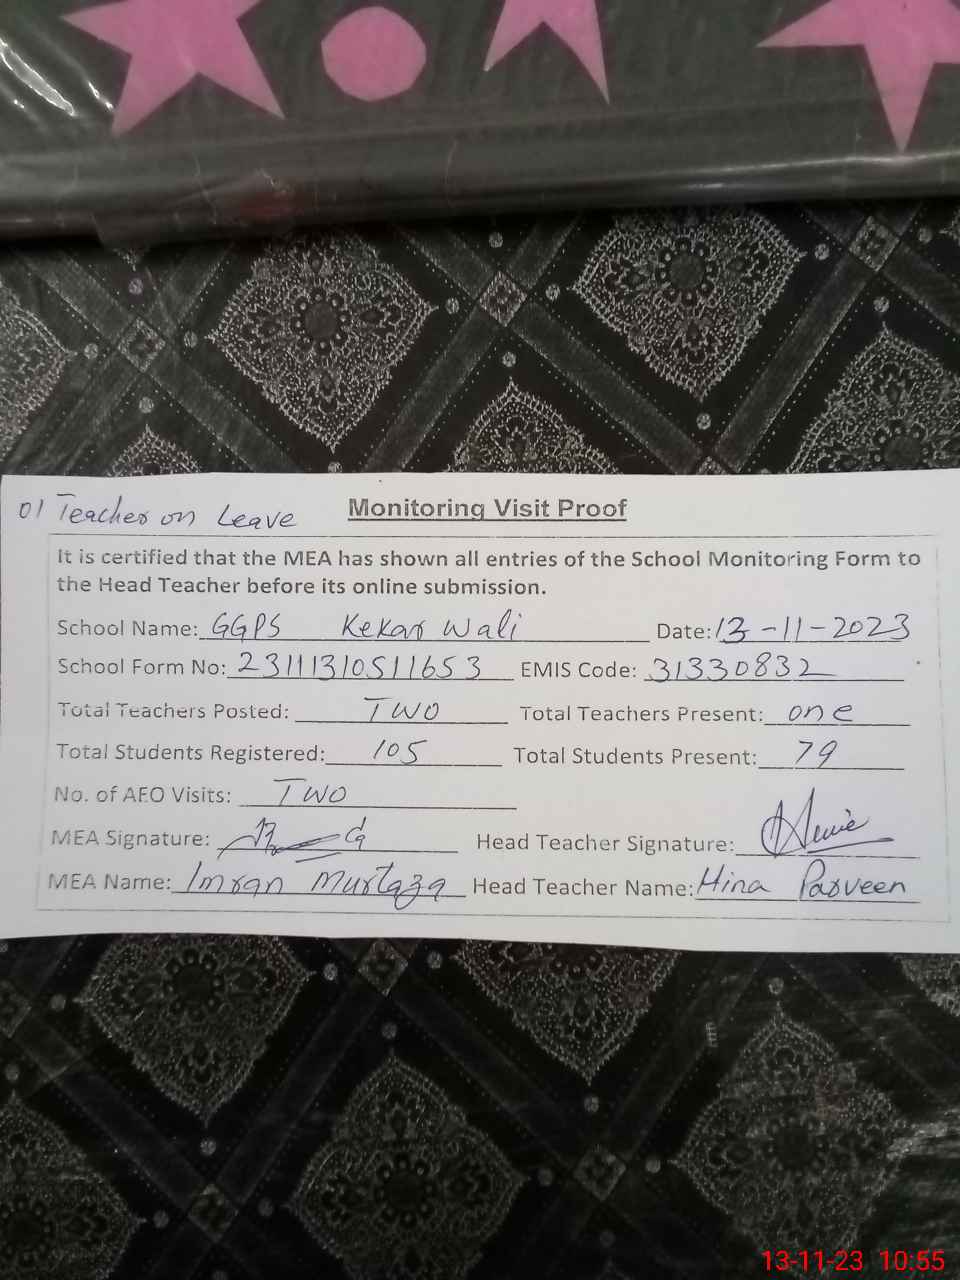 01 Teacher on Leave
Monitoring Visit Proof
It is certified that the MEA has shown all entries of the School Monitoring Form to
the Head Teacher before its online submission.
School Name: GGPS Kekar Wali Date: 13-11-2023
School Form No: 23111310511653 EMIS Code: 31330832
Total Teachers Posted: Two Total Teachers Present: one
Total Students Registered: 105 Total Students Present: 79
No. of AEO Visits: Two
MEA Signature: Head Teacher Signature:
MEA Name: Imran Murtaza Head Teacher Name: Hina Parveen
13-11-23 10:55